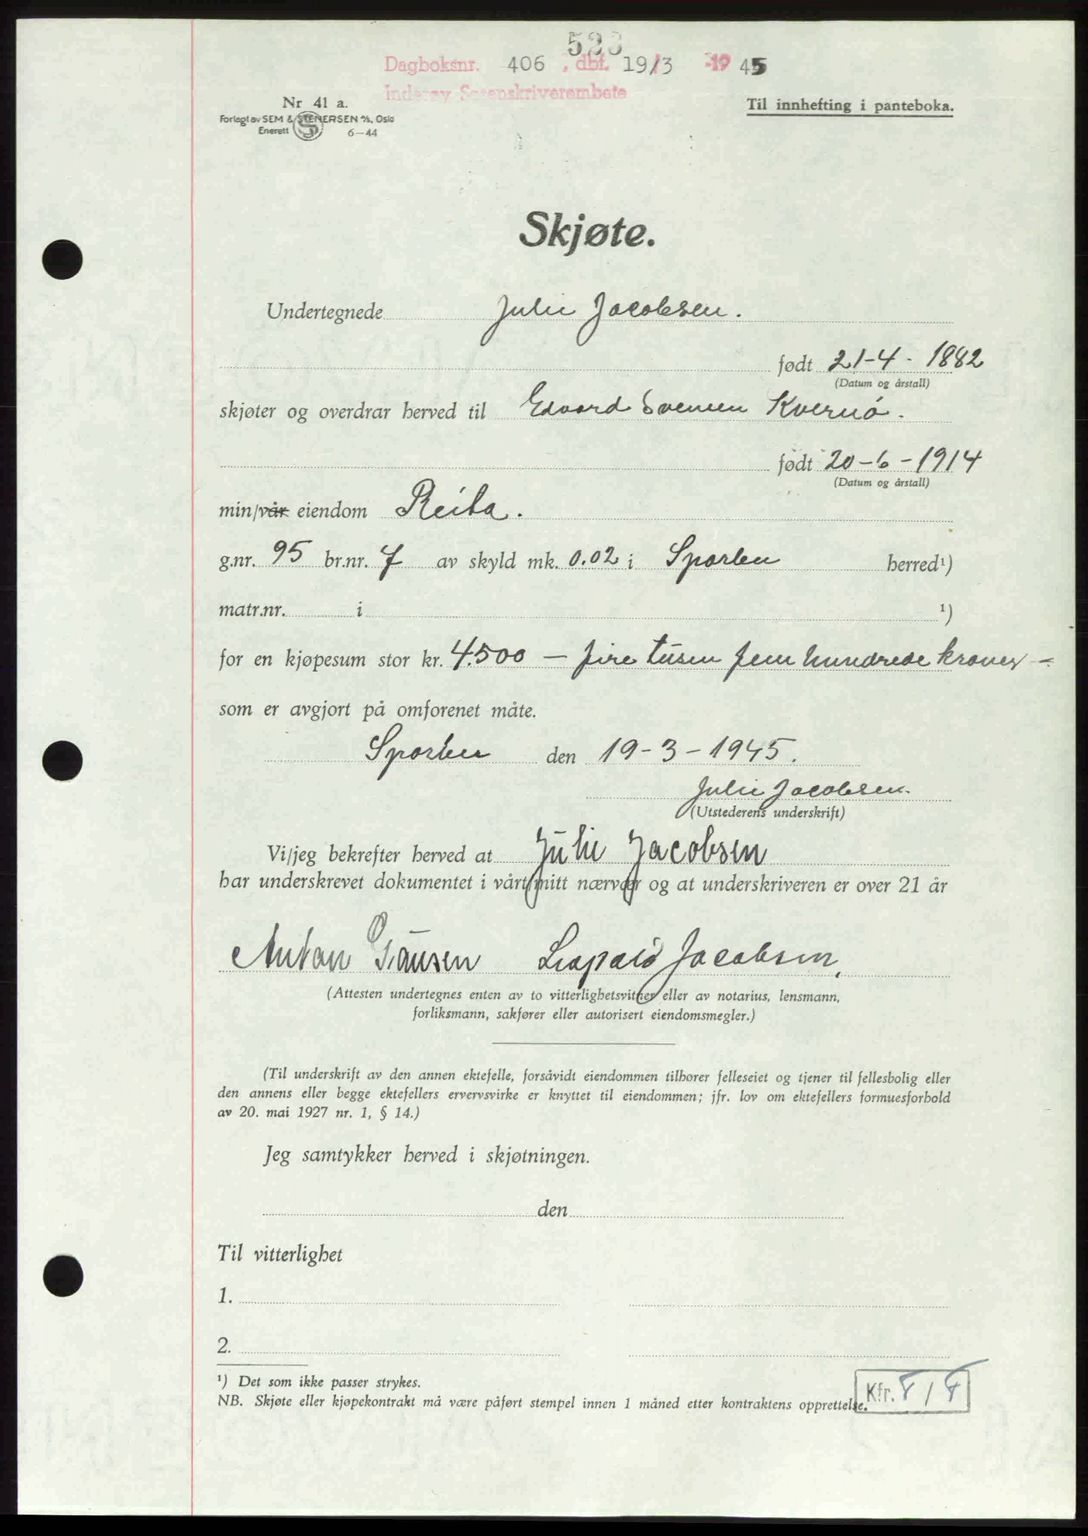 523
Dagboksnr. 406, dbf. 19/3 -1945
Inderøy Sorenskriverembete
Nr 41 a.
Forlagt av SEM & STENERSEN A/S, Oslo
Enerett 6-44
Til innhefting i panteboka.
Skjøte.
Undertegnede Julie Jacobsen.
født 21-4-1882
(Datum og årstall)
skjøter og overdrar herved til Edvard Svensen Kvernø.
født 20-6-1914
(Datum og årstall)
min/vår eiendom Reita.
g.nr. 95 br.nr. 7 av skyld mk. 0.02 i Sparbu herred¹)
matr.nr. i ¹)
for en kjøpesum stor kr. 4.500 — fire tusen fem hundrede kroner —
som er avgjort på omforenet måte.
Sparbu den 19-3-1945.
Julie Jacobsen.
(Utstederens underskrift)
Vi/jeg bekrefter herved at Julie Jacobsen
har underskrevet dokumentet i vårt/mitt nærvær og at underskriveren er over 21 år
Anton Clausen Leopold Jacobsen.
(Attesten undertegnes enten av to vitterlighetsvitner eller av notarius, lensmann,
forliksmann, sakfører eller autorisert eiendomsmegler.)
(Til underskrift av den annen ektefelle, forsåvidt eiendommen tilhører felleseiet og tjener til fellesbolig eller
den annens eller begge ektefellers ervervsvirke er knyttet til eiendommen; jfr. lov om ektefellers formuesforhold
av 20. mai 1927 nr. 1, § 14.)
Jeg samtykker herved i skjøtningen.
den
Til vitterlighet
1.
2.
¹) Det som ikke passer strykes.
NB. Skjøte eller kjøpekontrakt må være påført stempel innen 1 måned etter kontraktens opprettelse.
Kfr. /